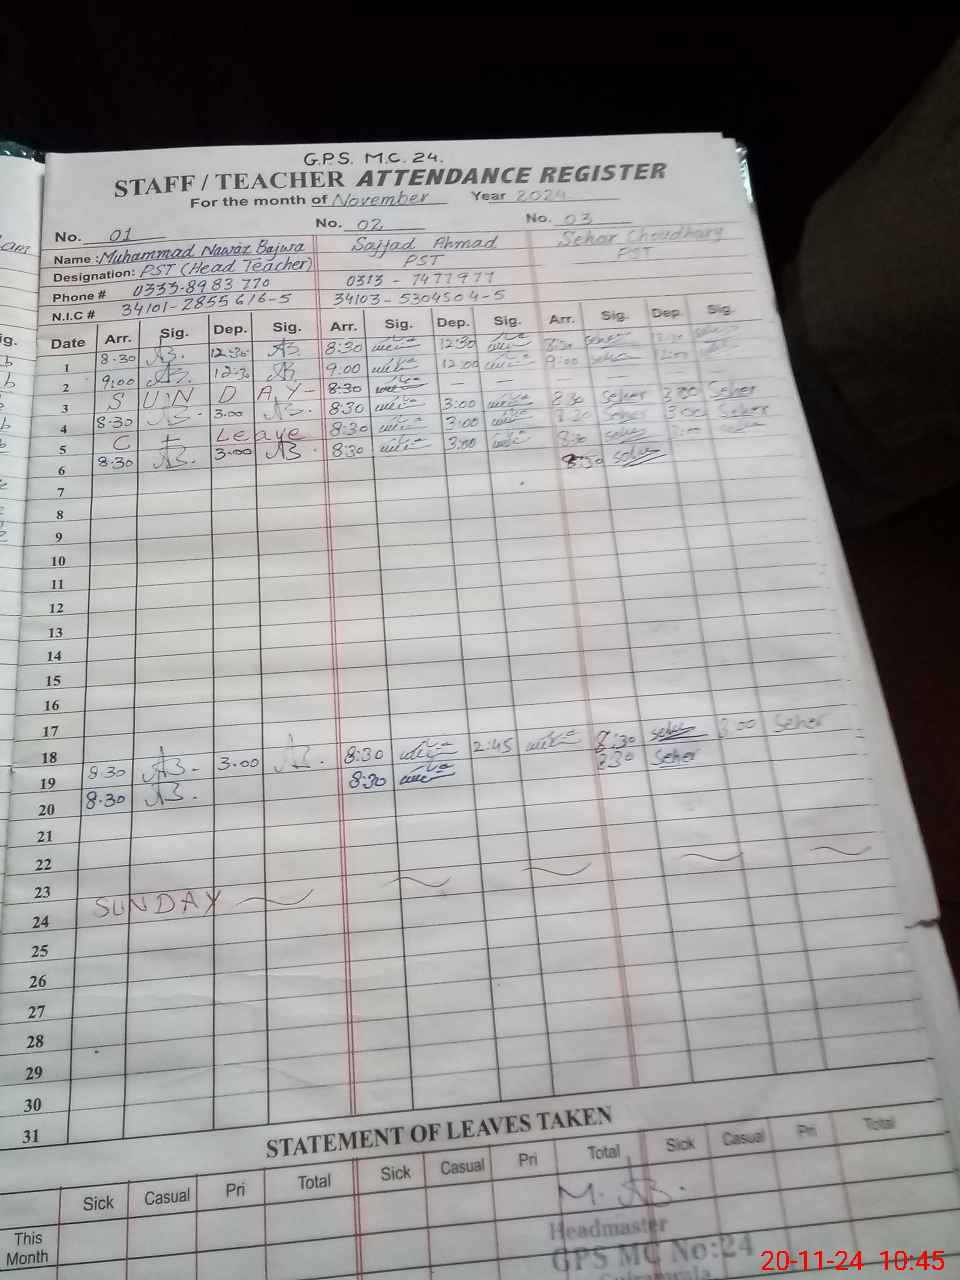 G.P.S. M.C. 24.
STAFF / TEACHER ATTENDANCE REGISTER
For the month of November Year 2024
No. 01 No. 02 No. 03
Name : Muhammad Nawaz Bajwa Sajjad Ahmad Sehar Choudhary
Designation: PST (Head Teacher) PST PST
Phone # 0333-8983770 0313 - 7477977
N.I.C # 34101-2855616-5 34103-5304504-5
Date Arr. Sig. Dep. Sig. Arr. Sig. Dep. Sig. Arr. Sig. Dep. Sig.
1 8.30 12:30 8:30 12:30 8:30
2 9:00 12:30 9:00 12:00 9:00 12:00
3 SUNDAY - 8:30 — — — — — —
4 8:30 3.00 8:30 3:00 8:30 Seher 3:00 Seher
5 C + Leave 8:30 3:00 8:30 Seher 3:00 Seher
6 8:30 3.00 8:30 3:00 8:30 3:00
7 8:30
8
9
10
11
12
13
14
15
16
17
18
19 8:30 3.00 8:30 2:45 8:30 3:00 Seher
20 8:30 8:30 8:30 Seher
21
22
23
24 SUNDAY
25
26
27
28
29
30
31
STATEMENT OF LEAVES TAKEN
Sick Casual Pri Total Sick Casual Pri Total Sick Casual Pri Total
This
Month
Headmaster
GPS MC No:24
20-11-24 10:45